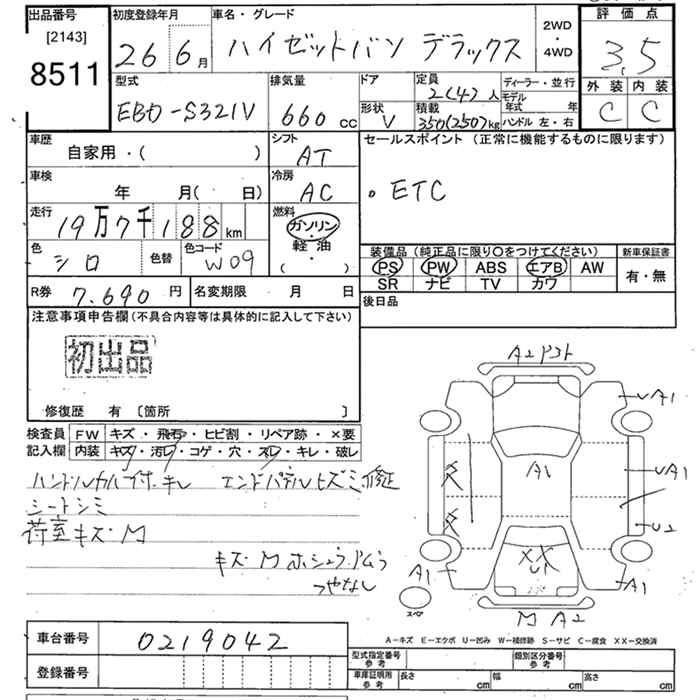 出品番号 [2143] 8511
初度登録年月 26 6月
車名・グレード ハイゼットバン デラックス
2WD・4WD
評価点 3.5
外装 内装
C C
型式 EBD-S321V
排気量 660 cc
ドア
形状 V
定員 2(4)人
積載 350(250)kg
ディーラー・並行
モデル年式 年
ハンドル 左・右
車歴 自家用・( )
シフト AT
セールスポイント (正常に機能するものに限ります)
。ETC
車検 年 月( 日)
冷房 AC
走行 19万7千188km
燃料 ガソリン・軽油・( )
色 シロ
色替
色コード W09
装備品 (純正品に限り○をつけてください)
新車保証書
PS PW ABS エアB AW
有・無
SR ナビ TV カワ
R券 7.690円
名変期限 月 日
後日品
注意事項申告欄(不具合内容等は具体的に記入して下さい)
初出品
修復歴 有 [箇所 ]
検査員記入欄
FW キズ・飛石・ヒビ割・リペア跡・×要
内装 キズ・汚レ・コゲ・穴・スレ・キレ・破レ
ハンドルカバー付.キレ エンドパネルヒズミ修正
シートシミ
荷室キズ.M
キズ.M
つやなし
A2
UA1
A1
UA1
U2
XX
U1
A1
A1
スペア
M A2
A-キズ E-エクボ U-凹み W-補修跡 S-サビ C-腐食 XX-交換済
車台番号 0219042
型式指定番号 参考
類別区分番号 参考
登録番号
車庫証明用 参考 長さ cm 幅 cm 高さ cm